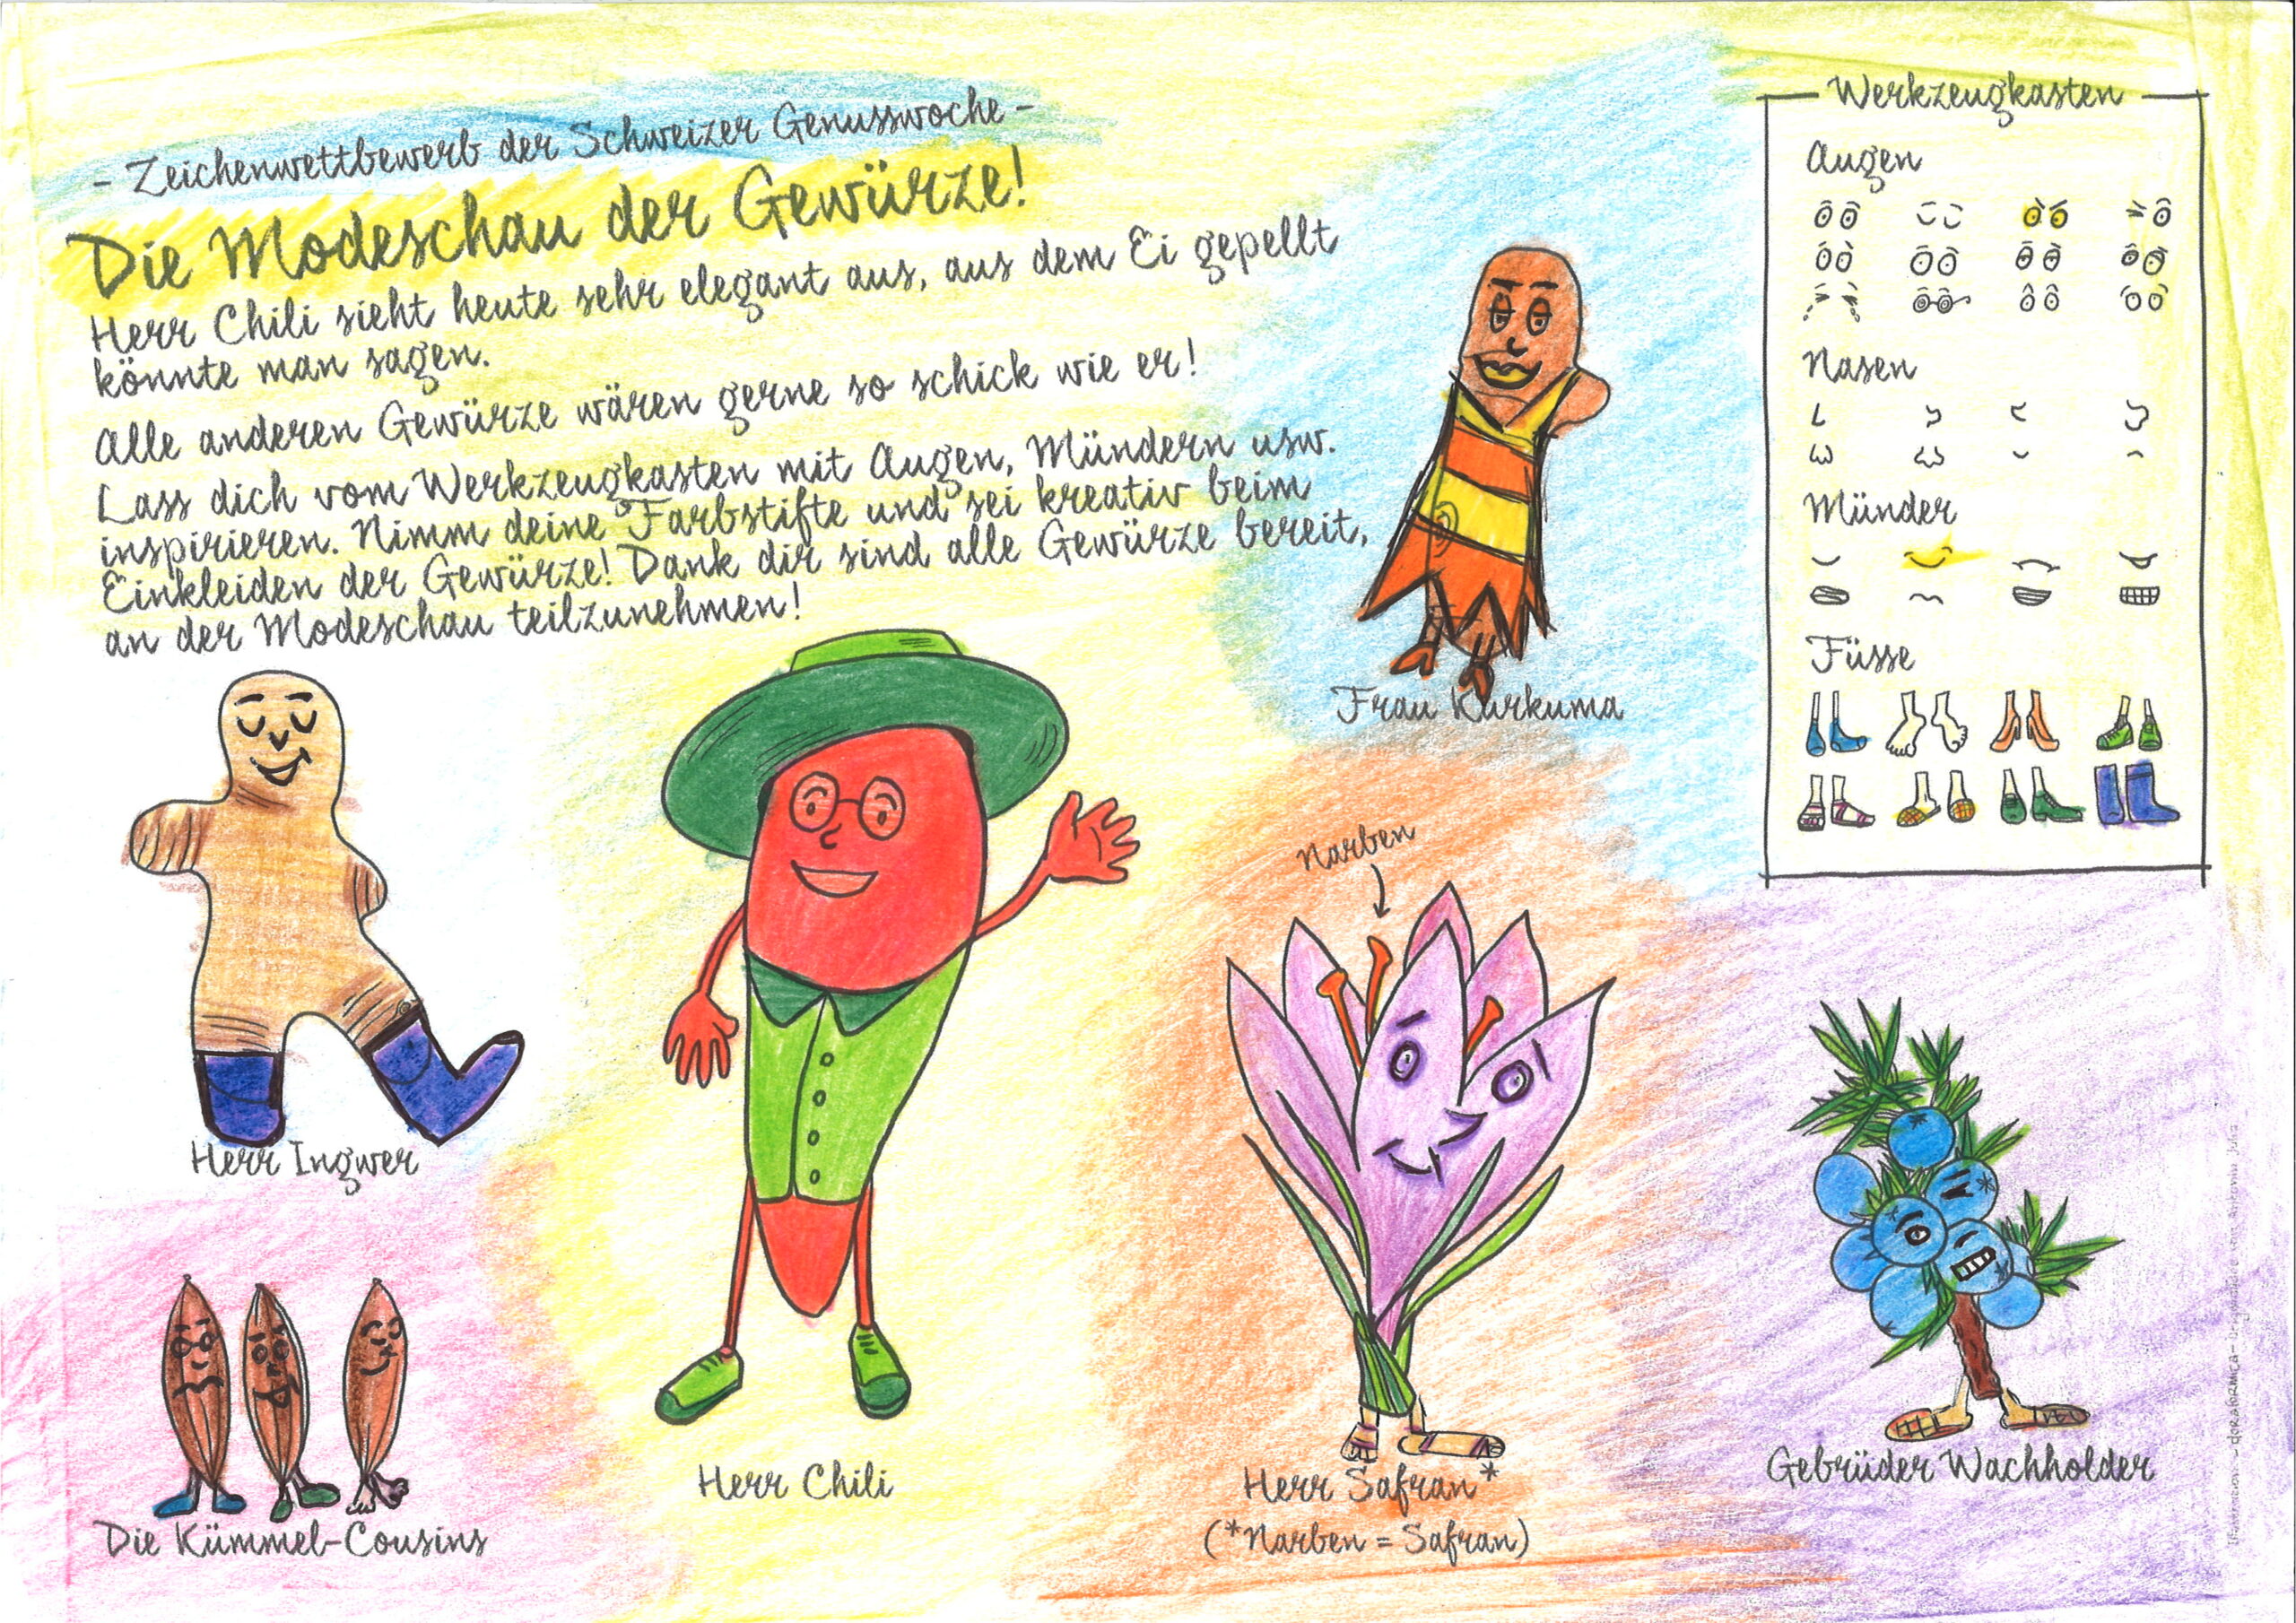 - Zeichenwettbewerb der Schweizer Genusswoche -
Die Modeschau der Gewürze!
Herr Chili sieht heute sehr elegant aus, aus dem Ei gepellt
könnte man sagen.
Alle anderen Gewürze wären gerne so schick wie er!
Lass dich vom Werkzeugkasten mit Augen, Mündern usw.
inspirieren. Nimm deine Farbstifte und sei kreativ beim
Einkleiden der Gewürze! Dank dir sind alle Gewürze bereit,
an der Modeschau teilzunehmen!
Werkzeugkasten
Augen
Nasen
Münder
Füsse
Frau Kurkuma
Narben
Herr Ingwer
Die Kümmel-Cousins
Herr Chili
Herr Safran*
(*Narben = Safran)
Gebrüder Wachholder